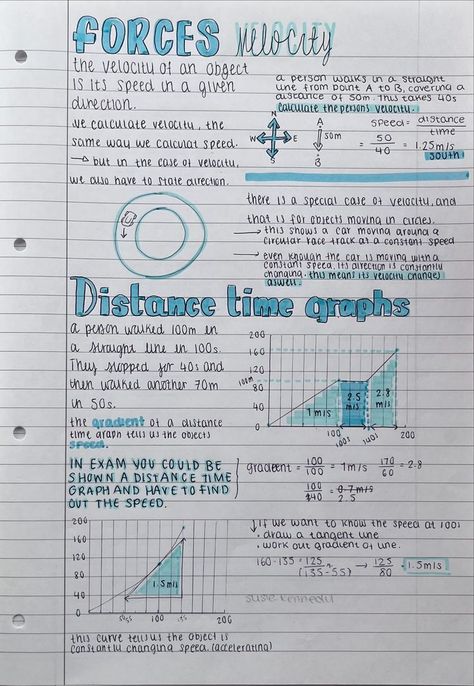 FORCES velocity
the velocity of an object
is its speed in a given
direction.
we calculate velocity, the
same way we calculat speed.
→ but in the case of velocity,
we also have to state direction.
a person walks in a straight
line from point A to B, covering a
distance of 50m. This takes 40s
calculate the persons velocity.
N
W E
S
A
50m
B
speed = distance
time
= 50
40
= 1.25m/s
south
there is a special case of velocity, and
that is for objects moving in circles.
→ this shows a car moving around a
circular race track at a constant speed
→ even though the car is moving with a
constant speed. its direction is constantly
changing. this means its velocity changes
aswell.
Distance time graphs
a person walked 100m in
a straight line in 100s.
They stopped for 40s and
then walked another 70m
in 50s.
the gradient of a distance
time graph tell us the objects
speed.
200
160
120
100m
80
40
0
1m/s
2.5
m/s
2.8
m/s
100
100s
140s
200
IN EXAM YOU COULD BE
SHOWN A DISTANCE TIME
GRAPH AND HAVE TO FIND
OUT THE SPEED.
gradient = 100
100
= 1m/s
170
60
= 2.8
100
40
= 0.7m/s
2.5
200
160
120
80
40
0
1.5m/s
100
200
↓ if we want to know the speed at 100s
• draw a tangent line
• work out gradient of line.
160-135 = 125
(135-55)
→ 125
80
= 1.5m/s
susie kennedy
this curve tells us the object is
constantly changing speed. (accelerating)